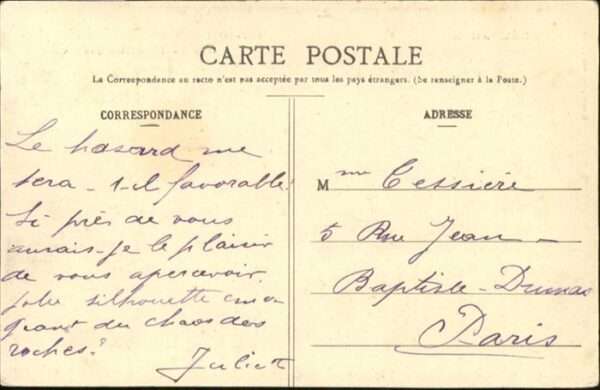 CARTE POSTALE
La Correspondance au recto n'est pas acceptée par tous les pays étrangers. (Se renseigner à la Poste.)
CORRESPONDANCE
Le hasard me
sera-t-il favorable?
Si près de vous
aurais-je le plaisir
de vous apercevoir
jolie silhouette
du chaos des
roches?
Juliett
ADRESSE
Mme Cessière
5 Rue Jean-
Baptiste-Dumas
Paris